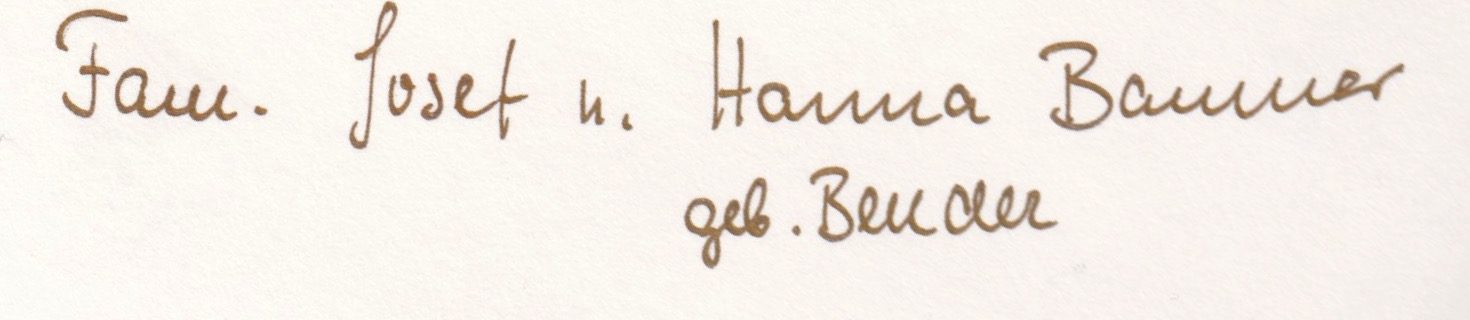 Fam. Josef u. Hanna Bammer
geb. Bender